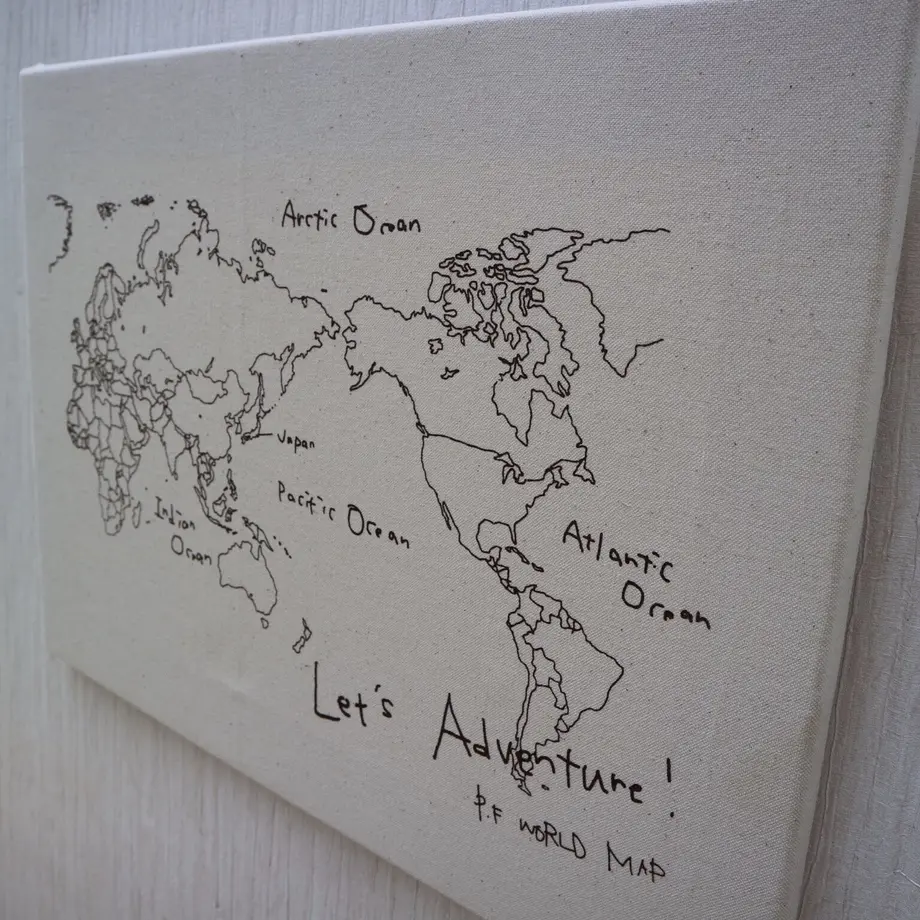 Arctic Ocean
Japan
Pacific Ocean
Indian
Ocean
Atlantic
Ocean
Let's Adventure!
P.F WORLD MAP